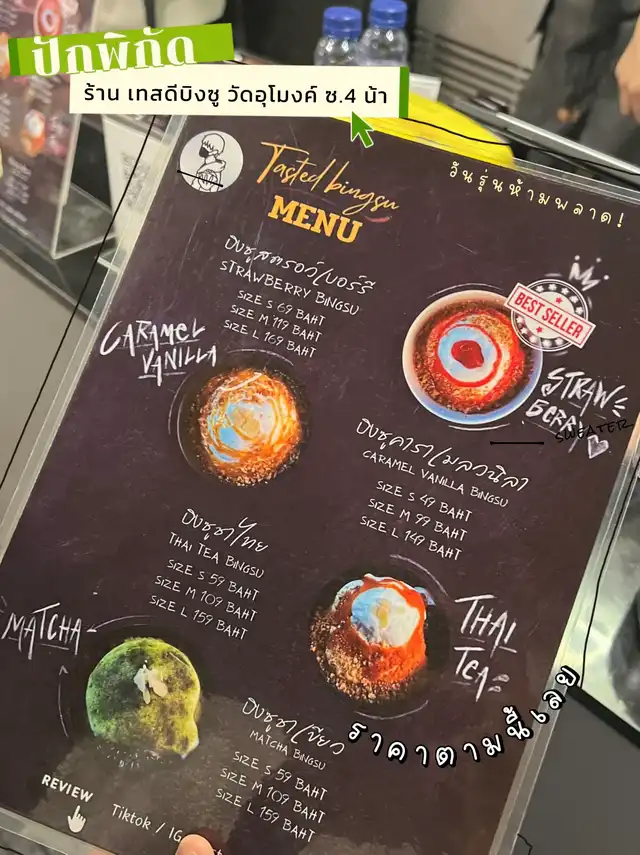 ปักพิกัด
ร้าน เทสดีบิงซู วัดอุโมงค์ ซ.4 น้า
วันรุ่นห้ามพลาด!
Tasted bingsu
MENU
บิงซูสตรอว์เบอร์รี
STRAWBERRY BINGSU
SIZE S 69 BAHT
SIZE M 119 BAHT
SIZE L 169 BAHT
BEST SELLER
CARAMEL
VANILLA
STRAW
BERRY
SWEATER
บิงซูคาราเมลวนิลา
CARAMEL VANILLA BINGSU
SIZE S 49 BAHT
SIZE M 99 BAHT
SIZE L 149 BAHT
บิงซูชาไทย
THAI TEA BINGSU
SIZE S 59 BAHT
SIZE M 109 BAHT
SIZE L 159 BAHT
THAI
TEA
MATCHA
บิงซูชาเขียว
MATCHA BINGSU
SIZE S 59 BAHT
SIZE M 109 BAHT
SIZE L 159 BAHT
ราคาตามนี้เลย
REVIEW
Tiktok / IG